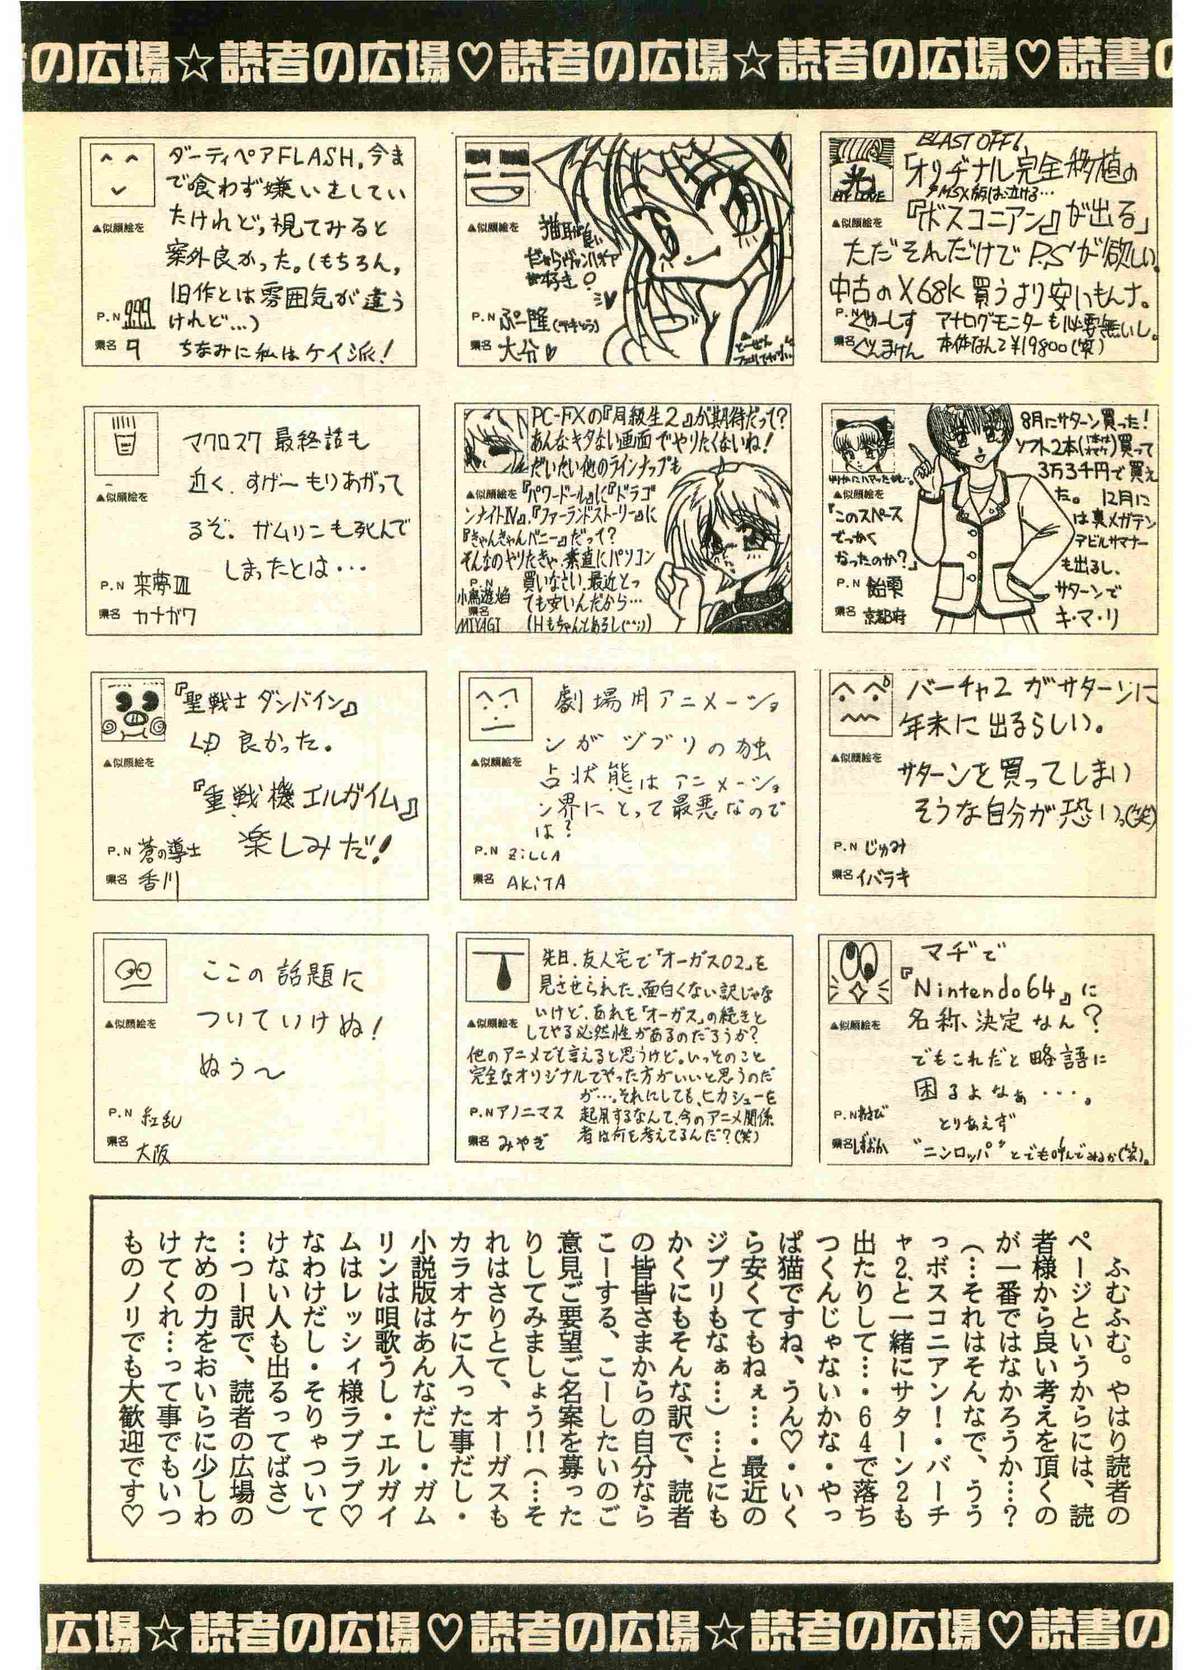 者の広場☆読者の広場♡読者の広場☆読者の広場♡読書の
BLAST OFF!
「オリヂナル完全移植の
※MSX版はお泣ける…
『ボスコニアン』が出る」
ただそんだけでP.Sが欲しい。
中古のX68k買うより安いもんナ。
アナログモニターも必要無いし。
本体なんて¥19800(笑)
MY LOVE
▲似顔絵を
P.N ぐめーしす
県名 ぐんまけん
猫耳が良い
だからヴァンパイア
が好き♀
▲似顔絵を
P.N ぷー隆
県名 大分♥
ダーティペアFLASH,今ま
で喰わず嫌いをしてい
たけれど,視てみると
案外良かった。(もちろん,
旧作とは雰囲気が違う
けれど…)
ちなみに私はケイ派!
▲似顔絵を
P.N 999
県名 タ
8月にサターン買った!
ソフト2本買って
3万3千円で買え
た。12月に
は真メガテン
デビルサマナー
も出るし、
サターンで
キ・マ・リ
▲似顔絵を
『このスペース
でっかく
なったのか?』
P.N 飴栗
県名 京都府
PC-FXの『同級生2』が期待だって?
あんなキタない画面でやりたくないね!
だいたい他のラインナップも
▲似顔絵を
『パワードール』に『ドラゴ
ンナイトⅣ』,『ファーランドストーリー』に
『きゃんきゃんバニー』だって?
そんなのヤリたきゃ、素直にパソコン
買いなさい,最近とっ
ても安いんだから…
(Hもちゃんとあるし(^^;))
P.N 小鳥遊焔
県名 MIYAGI
マクロス7 最終話も
近く、すげーもりあがって
るぞ。ガムリンも死んで
しまったとは・・・
▲似顔絵を
P.N 来夢Ⅷ
県名 カナガワ
バーチャ2がサターンに
年末に出るらしい。
サターンを買ってしまい
そうな自分が恐いっ(笑)
▲似顔絵を
P.N じゅみ
県名 イバラキ
劇場用アニメーショ
ンがジブリの独
占状態はアニメーショ
ン界にとって最悪なので
は?
▲似顔絵を
P.N ZiLLA
県名 AKiTA
『聖戦士ダンバイン』
LD良かった。
『重戦機エルガイム』
楽しみだ!
▲似顔絵を
P.N 蒼の導士
県名 香川
マヂで
『Nintendo64』に
名称決定なん?
でもこれだと略語に
困るよなぁ・・・。
とりあえず
"ニンロッパ"とでも呼んでみるか(笑)。
▲似顔絵を
P.N わさび
県名 しずおか
先日、友人宅で「オーガス02」を
見させられた。面白くない訳じゃな
いけど、あれを「オーガス」の続きと
してやる必然性があるのだろうか?
他のアニメでも言えると思うけど。いっそのこと
完全なオリジナルでやった方がいいと思うのだ
が…。それにしても、ヒカシューを
起用するなんて、今のアニメ関係
者は何を考えてるんだ?(笑)
▲似顔絵を
P.N アノニマス
県名 みやぎ
ここの話題に
ついていけぬ!
ぬぅ〜
▲似顔絵を
P.N 紅乱
県名 大阪
ふむふむ。やはり読者の
ページというからには、読
者様から良い考えを頂くの
が一番ではなかろうか…?
(…それはそんなで、うう
っボスコニアン!・バーチ
ャ2、と一緒にサターン2も
出たりして…・64で落ち
つくんじゃないかな・やっ
ぱ猫ですね、うん♡・いく
ら安くてもねぇ…・最近の
ジブリもなぁ…)…とにも
かくにもそんな訳で、読者
の皆皆さまからの自分なら
こーする、こーしたいのご
意見ご要望ご名案を募った
りしてみましょう!!(…そ
れはさりとて、オーガスも
カラオケに入った事だし・
小説版はあんなだし・ガム
リンは唄歌うし・エルガイ
ムはレッシィ様ラブラブ♡
なわけだし・そりゃついて
けない人も出るってばさ)
…つー訳で、読者の広場の
ための力をおいらに少しわ
けてくれ…って事でもいつ
ものノリでも大歓迎です♡
広場☆読者の広場♡読者の広場☆読者の広場♡読書の